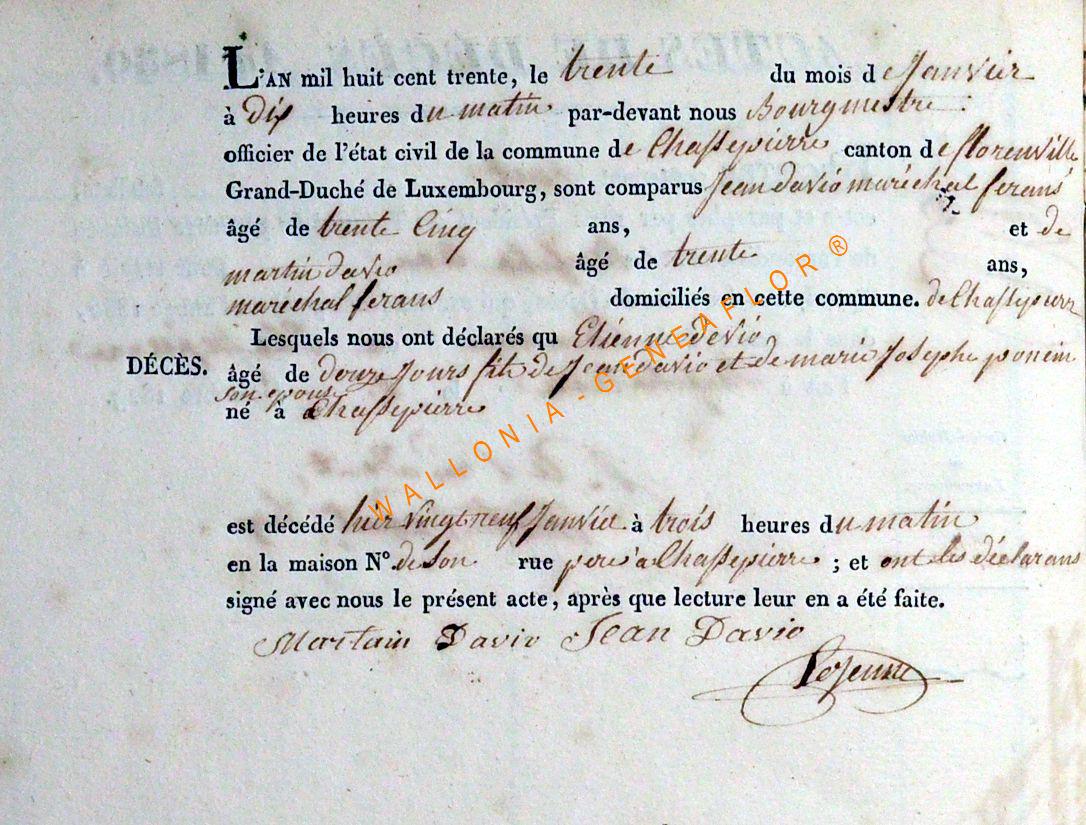 L'AN mil huit cent trente, le trente du mois de Janvier
à Dix heures du matin par-devant nous Bourgmestre
officier de l'état civil de la commune de Chassepierre canton de florenville
Grand-Duché de Luxembourg, sont comparus Jean davio maréchal ferans
âgé de trente Cinq ans, et de
martin davio âgé de trente ans,
maréchal ferans domiciliés en cette commune. de Chassepierre
Lesquels nous ont déclarés qu Etienne devio
DÉCÈS.
âgé de douze Jours fils de Jean davio et de marie Josephe ponein
son epouse
né à Chassepierre
est décédé hier vingt neuf Janvié à trois heures du matin
en la maison N° de son rue pere à Chassepierre ; et ont les déclarans
signé avec nous le présent acte, après que lecture leur en a été faite.
Martain Davio Jean Davio
WALLONIA-GENEAFLOR ®